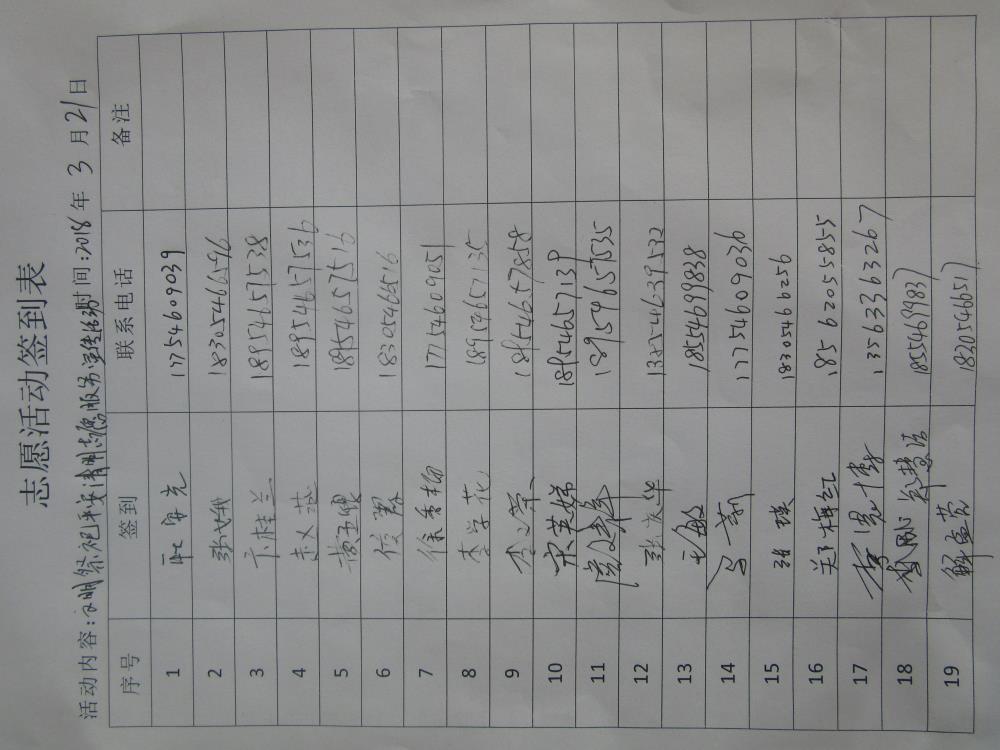 志愿活动签到表
活动内容:文明祭祀平安清明志愿服务宣传活动时间:2018年3月21日
序号 签到 联系电话 备注
1 17754609039
2 18305466596
3 卞桂兰 18954657538
4 赵义萍 18954657536
5 18954657516
6 18305466516
7 徐秀梅 17754609051
8 李学花 18954657135
9 李文荣 18954657858
10 宋英娣 18954657139
11 18954657535
12 13854639532
13 王敏 18554699838
14 马莉 17754609036
15 张瑛 18305466256
16 郑梅红 18562055855
17 13563363267
18 18554699837
19 解孟芸 18305466517